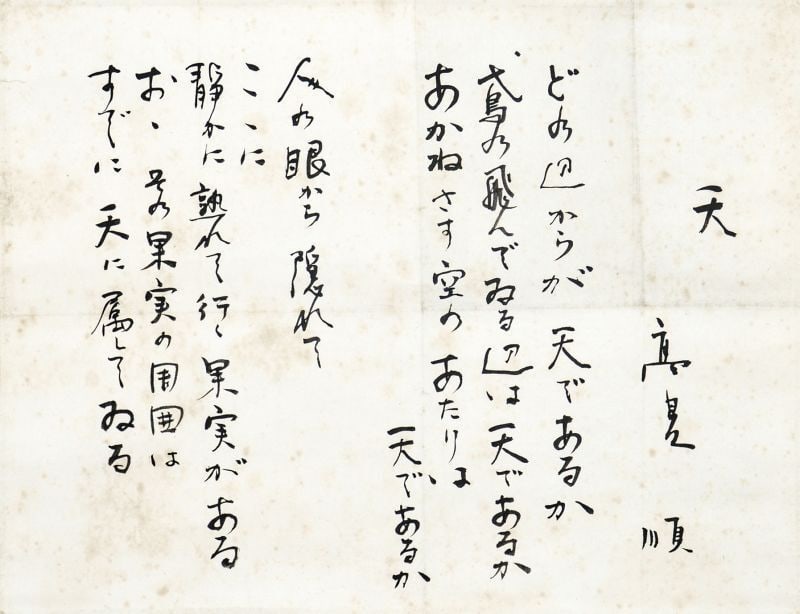 天
高見 順
どの辺からが 天であるか
鳶の飛んでゐる辺は天であるか
あかねさす空のあたりは
天であるか
人の眼から隠れて
こゝに
静かに熟れて行く果実がある
おゝ その果実の周囲は
すでに天に属してゐる